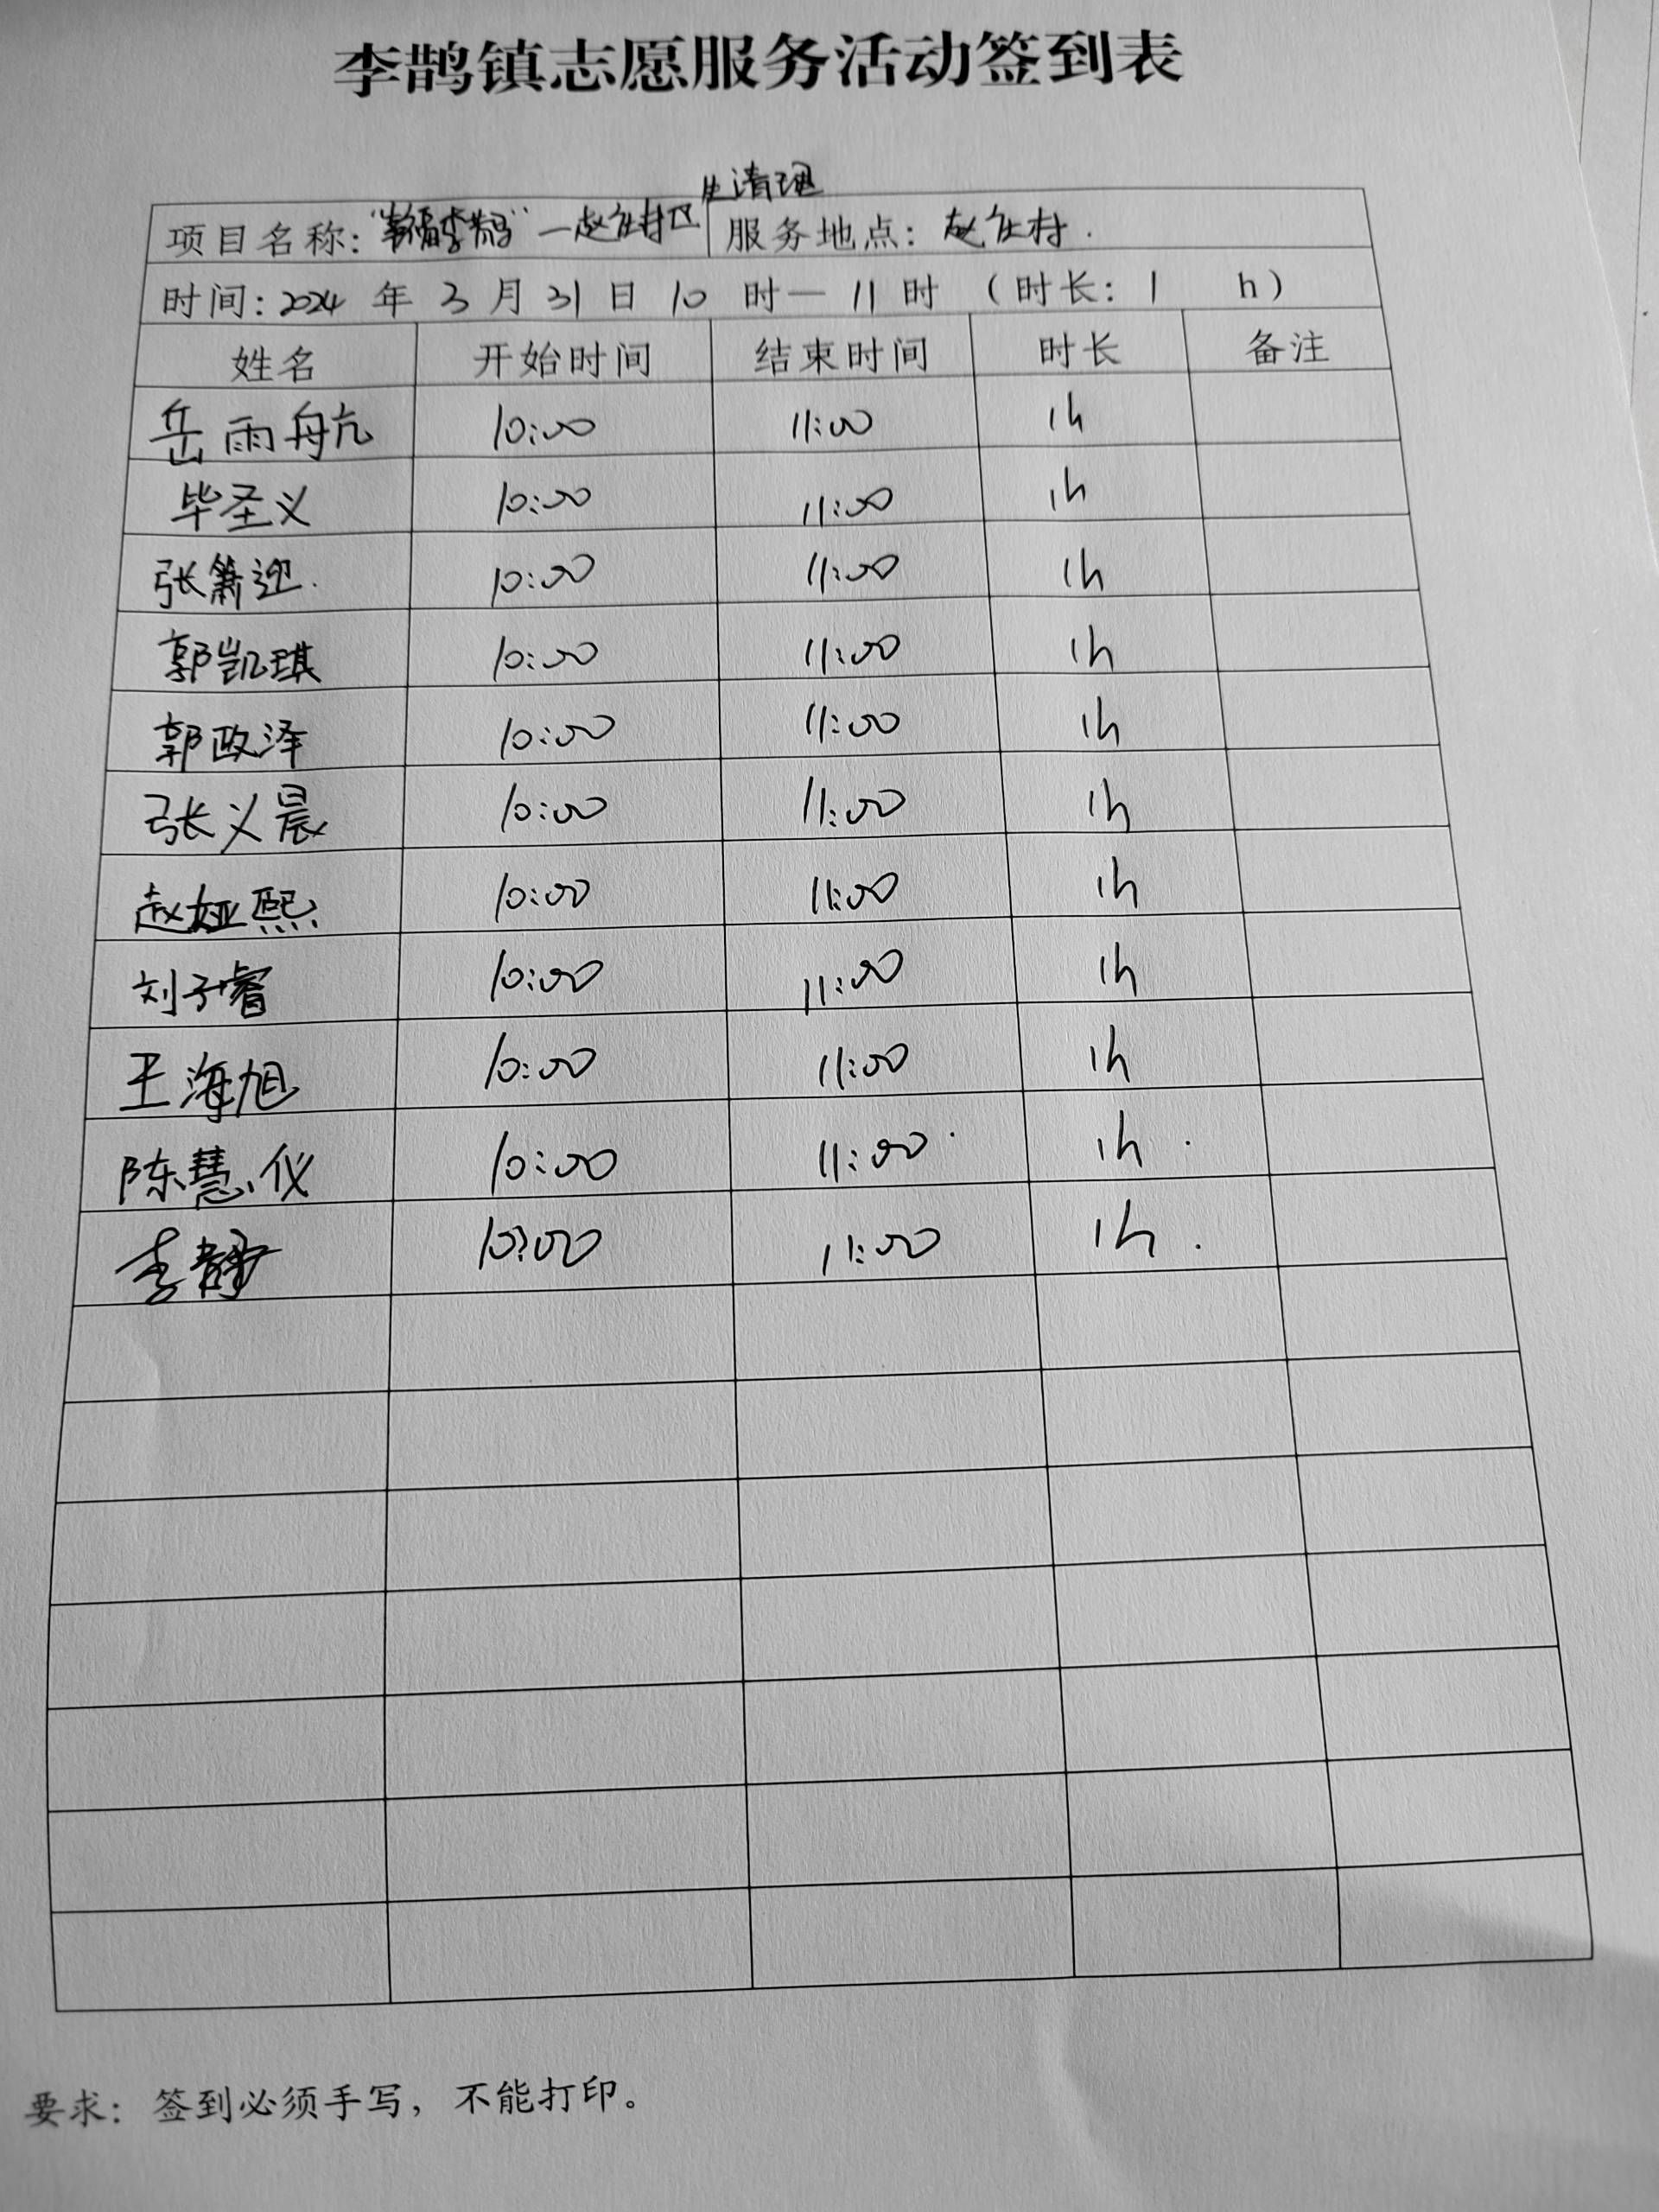 李鹊镇志愿服务活动签到表
生清理
项目名称: 李鹊"—赵庄村卫 服务地点: 赵庄村.
时间: 2024 年 3 月 31 日 10 时— 11 时 (时长: 1 h)
姓名 开始时间 结束时间 时长 备注
岳雨航 10:00 11:00 1h
毕圣义 10:00 11:00 1h
张箫迎. 10:00 11:00 1h
郭凯琪 10:00 11:00 1h
郭政泽 10:00 11:00 1h
张义晨 10:00 11:00 1h
赵娅熙 10:00 11:00 1h
刘子睿 10:00 11:00 1h
王海旭 10:00 11:00 1h
陈慧仪 10:00 11:00 1h
李静 10:00 11:00 1h.
要求: 签到必须手写, 不能打印。